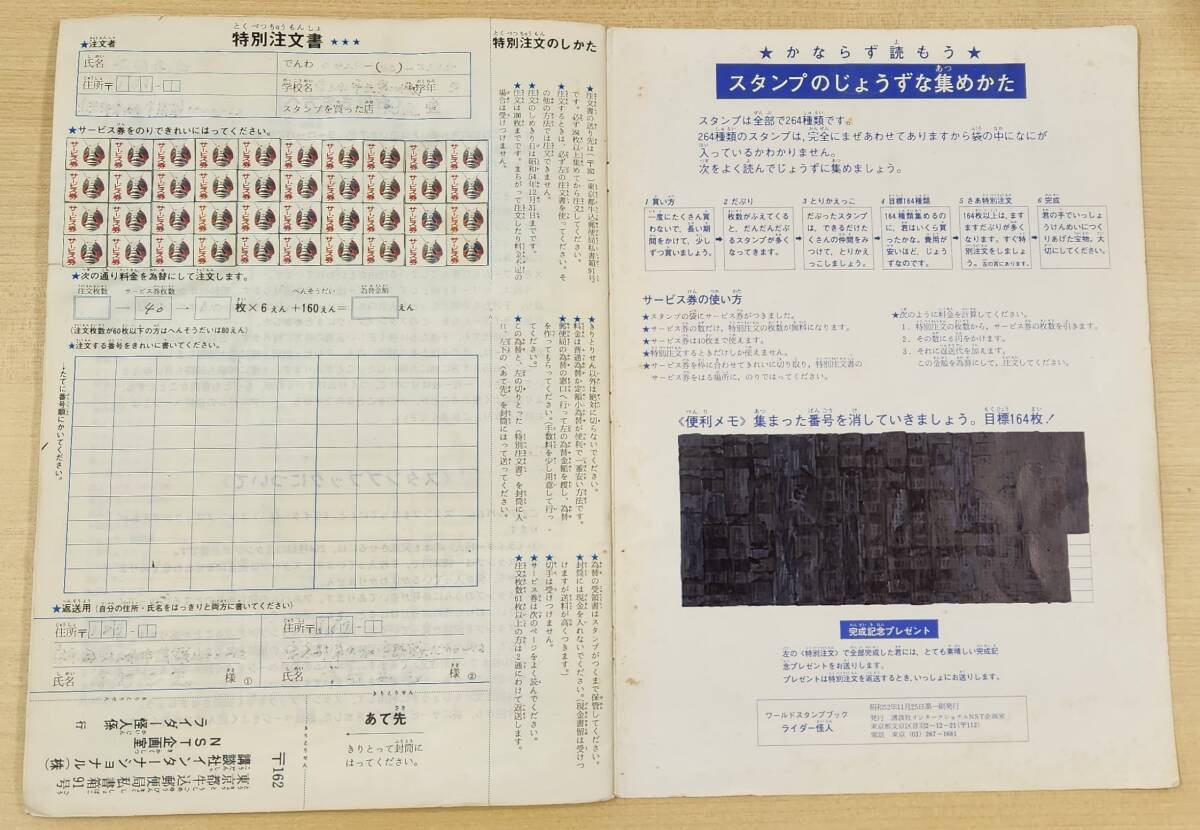 特別注文書 ★★★
★注文者
氏名
でんわ
住所〒
学校名
学年
スタンプを買った店
★サービス券をのりできれいにはってください。
サービス券
★次の通り料金を為替にして注文します。
注文枚数
サービス券枚数
へんそうだい
為替金額
40
枚×6えん+160えん=
えん
(注文枚数が60枚以下の方はへんそうだいは80えん)
★注文する番号をきれいに書いてください。
たてに番号順にかいてください。
★返送用(自分の住所・氏名をはっきりと両方に書いてください)
住所〒
氏名
様①
住所〒
氏名
様②
きりとりせん
あて先
きりとって封筒に
はってください。
〒162
東京都牛込郵便局私書箱91号
講談社インターナショナル(株)
NST企画室
ライダー怪人係 行
特別注文のしかた
★注文書の送り先は(二千円)
★注文するときは、必ず左の注文書を使ってください。そ
の他の方法では注文できません。
★注文のしめきり日は昭和54年12月31日までです。
★きりとりせん以外は絶対に切らないでください。
★料金は普通為替か定額小為替が便利で一番安い方法です。
★郵便局の為替の窓口へ行って左の為替金額を渡し、為替
を作ってもらってください。(手数料を少し用意して行っ
てください。)
★この為替と、左の切りとった〈特別注文書〉を封筒に入
れ、左下の〈あて先〉を封筒にはって送ってください。
★為替の受領書はスタンプがつくまで保管してください。
★封筒には現金を入れないでください。(現金書留は受けつ
けますが送料が高くつきます。)
★切手は受けつけません。
★サービス券は次のページをよく読んでください。
★注文枚数61枚以上の方は2通にわけて返送します。
★かならず読もう★
スタンプのじょうずな集めかた
スタンプは全部で264種類です。
264種類のスタンプは、完全にまぜあわせてありますから袋の中になにが
入っているかわかりません。
次をよく読んでじょうずに集めましょう。
1 買い方
一度にたくさん買
わないで、長い期
間をかけて、少し
ずつ買いましょう。
2 だぶり
枚数がふえてくる
と、だんだんだぶ
るスタンプが多く
なってきます。
3 とりかえっこ
だぶったスタンプ
は、できるだけた
くさんの仲間をみ
つけて、とりかえ
っこしましょう。
4 目標164種類
164種類集めるの
に、君はいくら買
ったかな。費用が
安いほど、じょう
ずなのです。
5 さあ特別注文
164枚以上は、ます
ますだぶりが多く
なります。すぐ特
別注文をしましょ
う。左の頁にあります。
6 完成
君の手でいっしょ
うけんめいにつく
りあげた宝物。大
切にしてください。
サービス券の使い方
★スタンプの袋にサービス券がつきました。
★サービス券の数だけ、特別注文の枚数が無料になります。
★サービス券は40枚まで使えます。
★特別注文するときだけしか使えません。
★サービス券を枠に合わせてきれいに切り取り、特別注文書の
サービス券をはる場所に、のりではってください。
★次のように料金を計算してください。
1. 特別注文の枚数から、サービス券の枚数を引きます。
2. その数に6円をかけます。
3. それに返送代を加えます。
この金額を為替にして、注文してください。
《便利メモ》集まった番号を消していきましょう。目標164枚!
完成記念プレゼント
左の〈特別注文〉で全部完成した君には、とても素晴しい完成記
念プレゼントをお送りします。
プレゼントは特別注文を返送するとき、いっしょにお送りします。
ワールドスタンプブック
ライダー怪人
昭和52年11月25日第一刷発行
発行 講談社インターナショナルNST企画室
東京都文京区音羽2-12-21(〒112)
電話 東京(03)267-1661